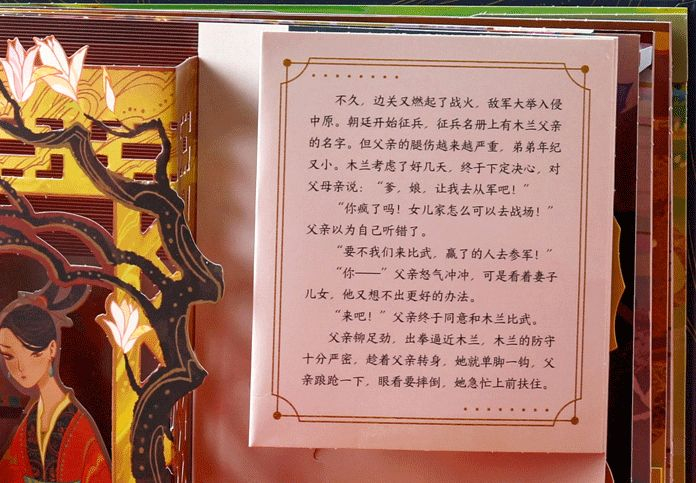 不久，边关又燃起了战火，敌军大举入侵
中原。朝廷开始征兵，征兵名册上有木兰父亲
的名字。但父亲的腿伤越来越严重，弟弟年纪
又小。木兰考虑了好几天，终于下定决心，对
父母亲说：“爹，娘，让我去从军吧！”
“你疯了吗！女儿家怎么可以去战场！”
父亲以为自己听错了。
“要不我们来比武，赢了的人去参军！”
“你——”父亲怒气冲冲，可是看着妻子
儿女，他又想不出更好的办法。
“来吧！”父亲终于同意和木兰比武。
父亲铆足劲，出拳逼近木兰，木兰的防守
十分严密，趁着父亲转身，她就单脚一钩，父
亲踉跄一下，眼看要摔倒，她急忙上前扶住。